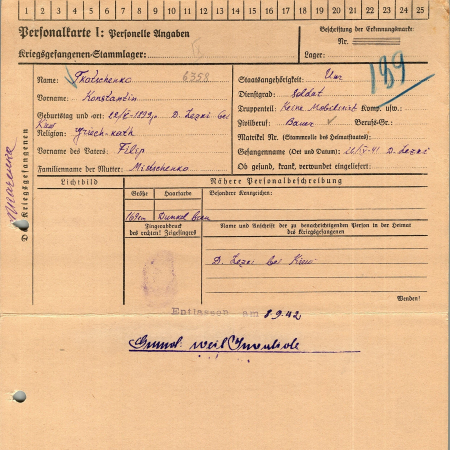 1 2 3 4 5 6 7 8 9 10 11 12 13 14 15 16 17 18 19 20 21 22 23 24 25
Personalkarte I: Personelle Angaben
Kriegsgefangenen-Stammlager:
Beschriftung der Erkennungsmarke:
Nr.
Lager:
189
Des Kriegsgefangenen
Name: Tkatschenko 6358
Vorname: Konstantin
Geburtstag und -ort: D. Lezki bei
Kiew
Religion: Griech-kath
Vorname des Vaters: Filip
Familienname der Mutter: Mistschenko
Staatsangehörigkeit: Ukr
Dienstgrad: Soldat
Truppenteil: Keine Komp. usw.:
Zivilberuf: Bauer Berufs-Gr.:
Matrikel Nr. (Stammrolle des Heimatstaates):
Gefangennahme (Ort und Datum):
Ob gesund, krank, verwundet eingeliefert:
Lichtbild
Nähere Personalbeschreibung
Größe
Haarfarbe
Besondere Kennzeichen:
Dunkel
Fingerabdruck
des rechten! Zeigefingers
Name und Anschrift der zu benachrichtigenden Person in der Heimat
des Kriegsgefangenen
D. Lezki bei Kiew
Wenden!
Entlassen am 8.9.42
Grund weil Invalide